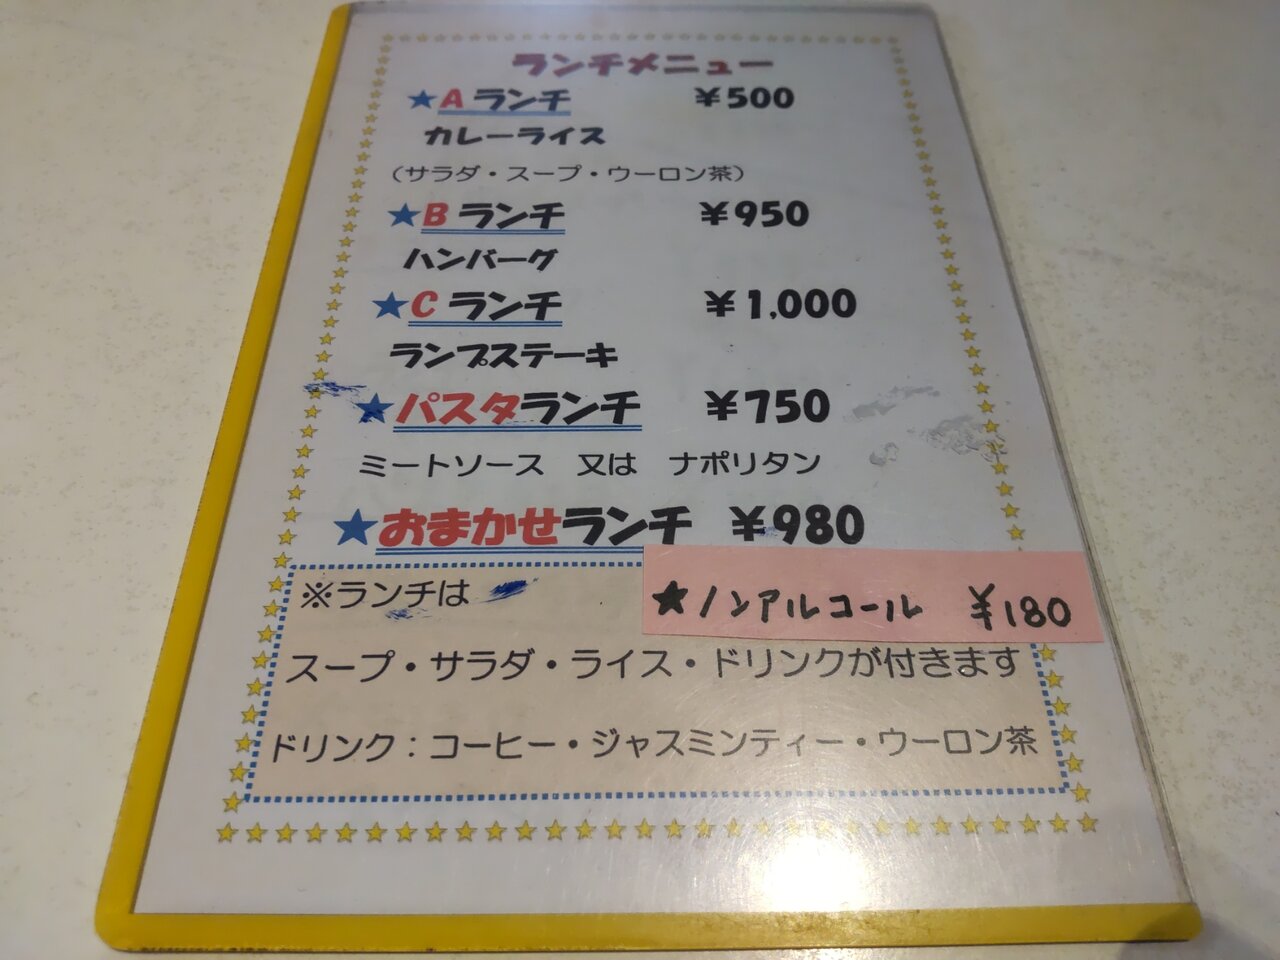 ランチメニュー
★Aランチ ￥500
カレーライス
（サラダ・スープ・ウーロン茶）
★Bランチ ￥950
ハンバーグ
★Cランチ ￥1,000
ランプステーキ
★パスタランチ ￥750
ミートソース 又は ナポリタン
★おまかせランチ ￥980
※ランチは
★ノンアルコール ￥180
スープ・サラダ・ライス・ドリンクが付きます
ドリンク：コーヒー・ジャスミンティー・ウーロン茶